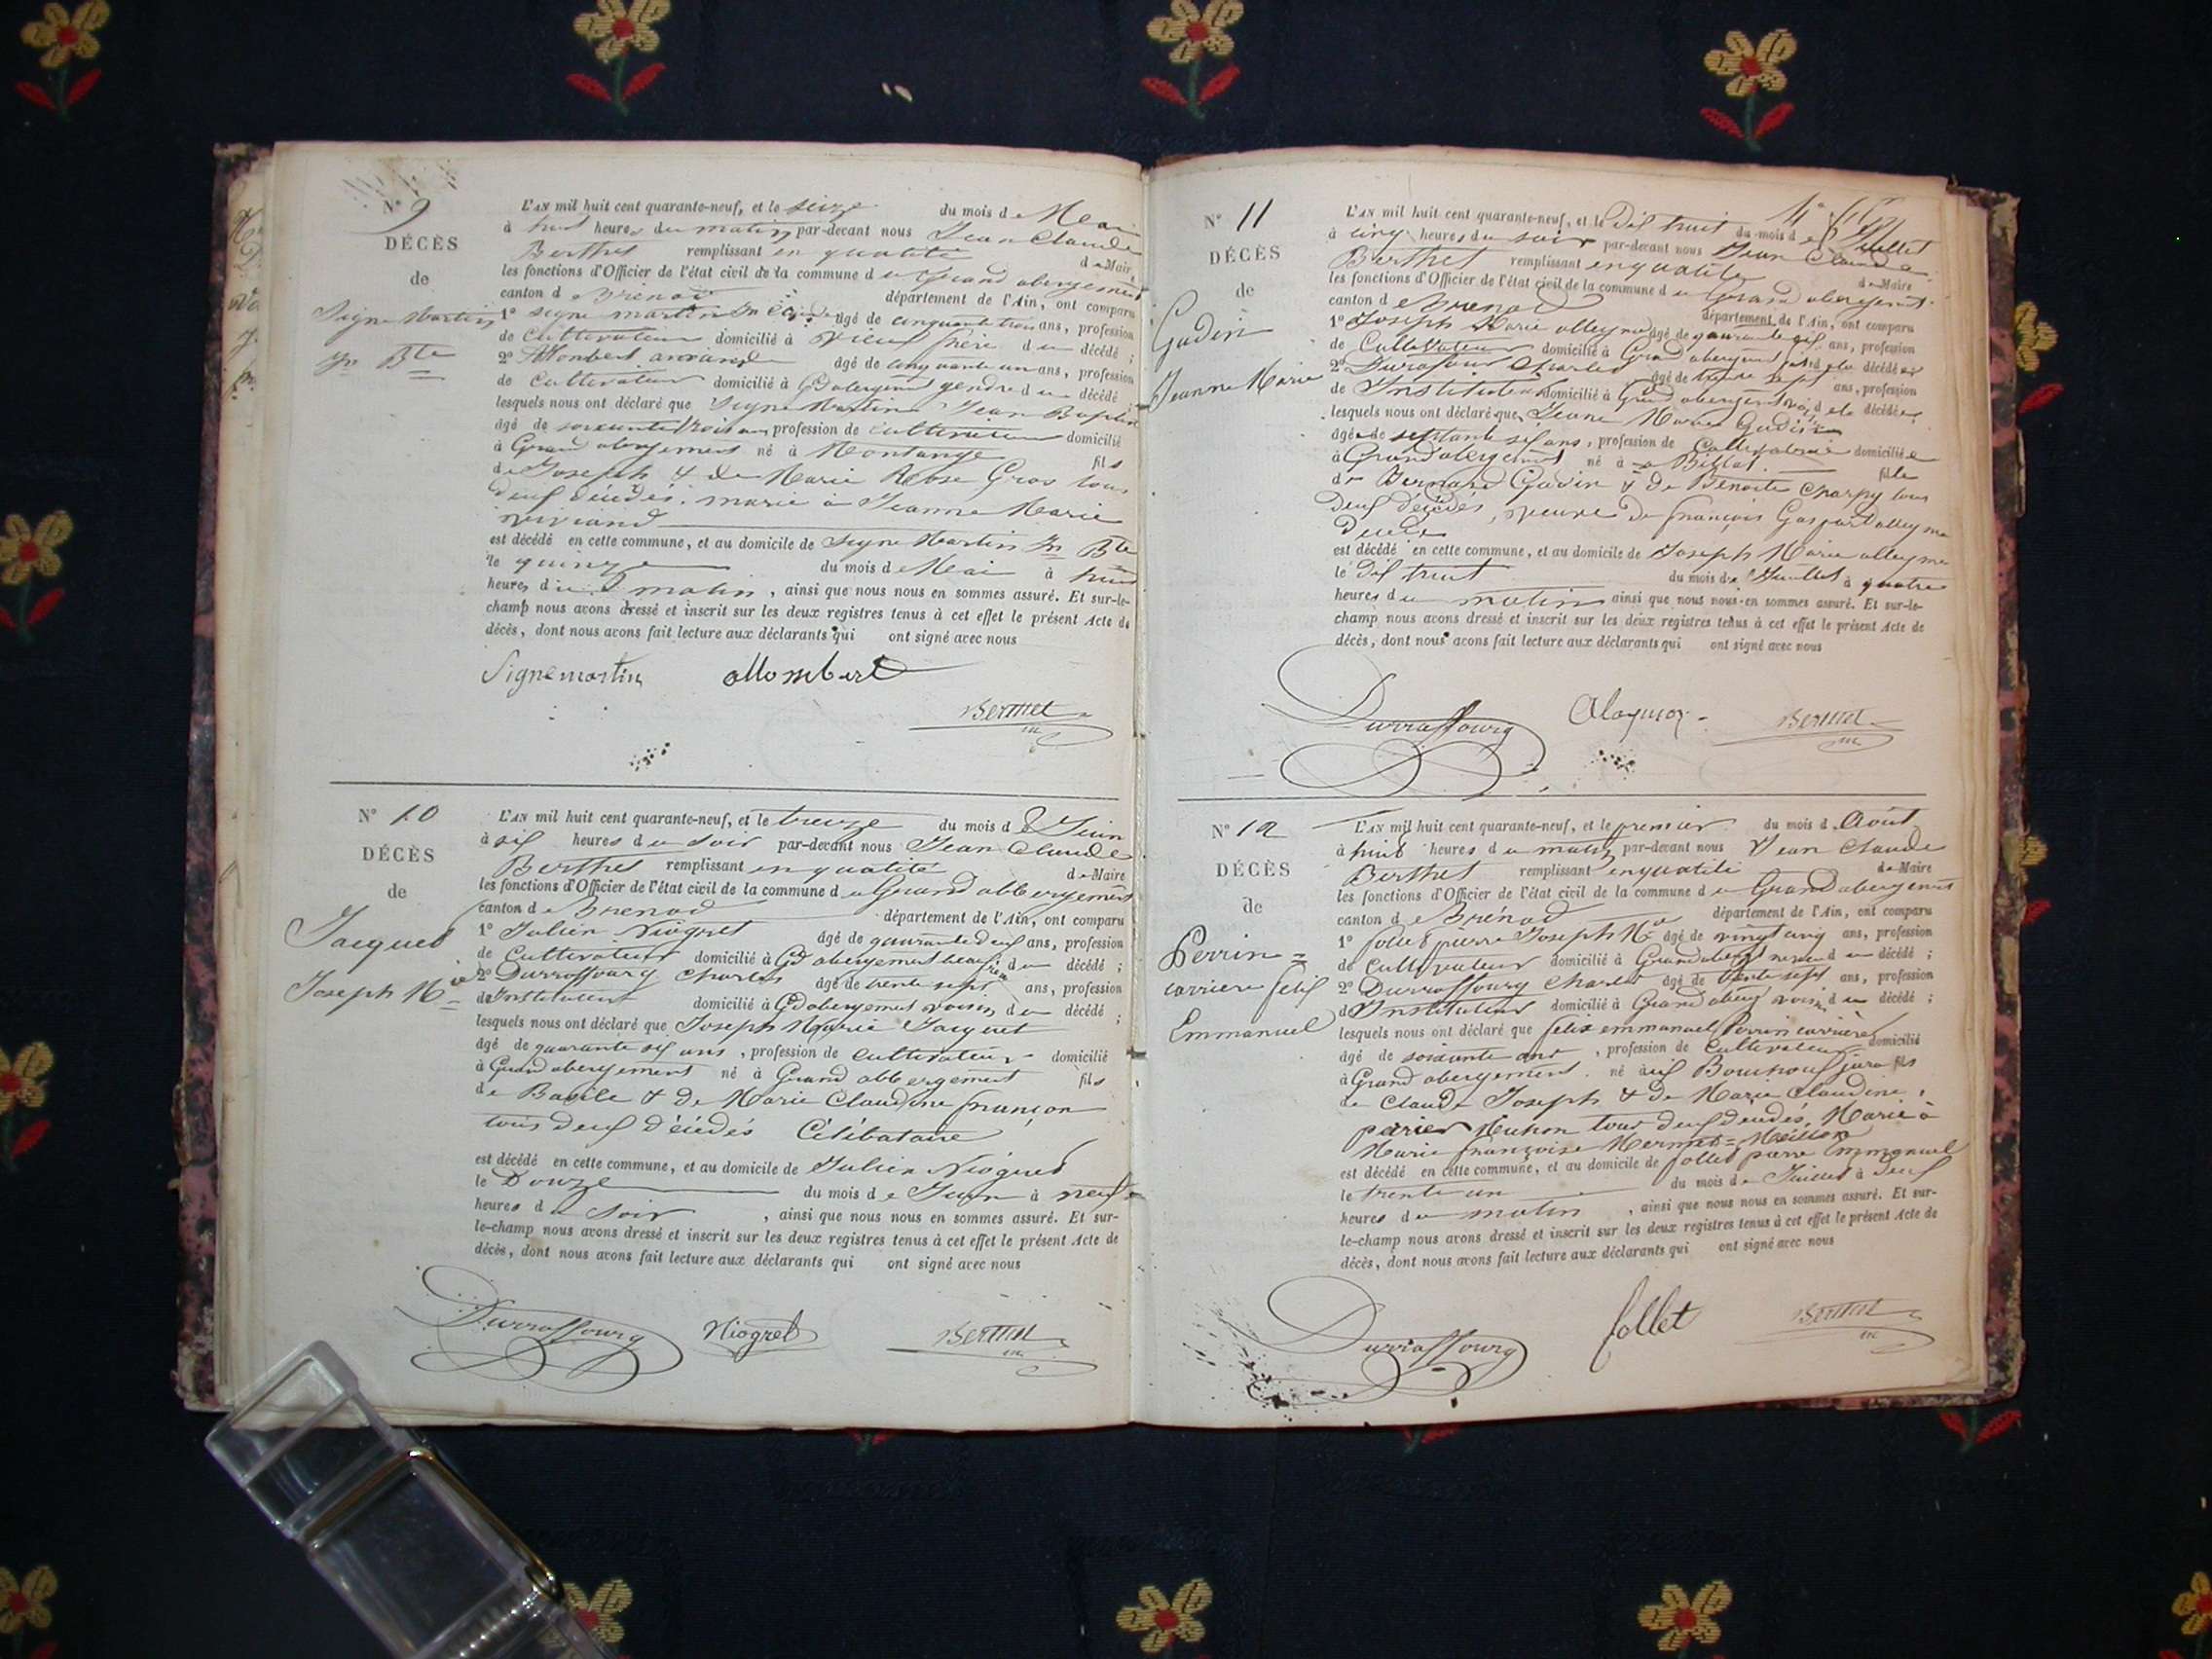 N° 9
DÉCÈS
de
Signe Martin
Jn Bte
L'AN mil huit cent quarante-neuf, et le seize du mois de Mai
à huit heures du matin par-devant nous Jean Claude
Berthet remplissant en qualité de Maire
les fonctions d'Officier de l'état civil de la commune du Grand abergement
canton de Brénod département de l'Ain, ont comparu
1° Signe martin âgé de cinquante trois ans, profession
de Cultivateur domicilié à Vieu frère du décédé ;
2° Allombert âgé de cinquante un ans, profession
de Cultivateur domicilié à Gd abergement gendre du décédé
lesquels nous ont déclaré que Signe Martin Jean Baptiste
âgé de soixante trois ans profession de cultivateur domicilié
à Grand abergement né à Montange fils
de Joseph & de Marie Rose Gros tous
deux décédés. marié à Jeanne Marie
Viviand
est décédé en cette commune, et au domicile de Signe Martin Jn Bte
le quinze du mois de Mai à huit
heures du matin, ainsi que nous nous en sommes assuré. Et sur-le-
champ nous avons dressé et inscrit sur les deux registres tenus à cet effet le présent Acte de
décès, dont nous avons fait lecture aux déclarants qui ont signé avec nous
Signemartin allombert
Berthet
N° 10
DÉCÈS
de
Jacquet
Joseph Mie
L'AN mil huit cent quarante-neuf, et le treize du mois de Juin
à six heures du soir par-devant nous Jean Claude
Berthet remplissant en qualité de Maire
les fonctions d'Officier de l'état civil de la commune du Grand abbergement
canton de Brenod département de l'Ain, ont comparu
1° Julien Niogret âgé de quarante deux ans, profession
de Cultivateur domicilié à Gd abergement beau frère du décédé ;
2° Durraffourg Charles âgé de trente sept ans, profession
d'Instituteur domicilié à Gd abergement voisin du décédé ;
lesquels nous ont déclaré que Joseph Marie Jacquet
âgé de quarante six ans, profession de cultivateur domicilié
à Grand abergement né à Grand abbergement fils
de Basile & de Marie Claudine françon
tous deux décédés Célibataire
est décédé en cette commune, et au domicile de Julien Niogret
le Douze du mois de Juin à neuf
heures du soir, ainsi que nous nous en sommes assuré. Et sur-
le-champ nous avons dressé et inscrit sur les deux registres tenus à cet effet le présent Acte de
décès, dont nous avons fait lecture aux déclarants qui ont signé avec nous
Durraffourg Niogret Berthet
N° 11
DÉCÈS
de
Gudin
Jeanne Marie
L'AN mil huit cent quarante-neuf, et le dix huit du mois de Juillet
à cinq heures du soir par-devant nous Jean Claude
Berthet remplissant en qualité de Maire
les fonctions d'Officier de l'état civil de la commune du Grand abergement
canton de Brenod département de l'Ain, ont comparu
1° Joseph Marie alleyma âgé de quarante six ans, profession
de Cultivateur domicilié à Grand abergement de la décédée
2° Durrafour Charles âgé de trente sept ans, profession
de Instituteur domicilié à Grand abergement de la décédée
lesquels nous ont déclaré que Jeane Marie Gudin
âgée de septante six ans, profession de Cultivatrice domiciliée
à Grand abergement né à Billat fille
de Bernard Gudin & de Benoite Charpy tous
deux décédés, veuve de françois Gaspard alleyma
Décédé
est décédé en cette commune, et au domicile de Joseph Marie alleyma
le dix huit du mois de Juillet à quatre
heures du matin ainsi que nous nous en sommes assuré. Et sur-le-
champ nous avons dressé et inscrit sur les deux registres tenus à cet effet le présent Acte de
décès, dont nous avons fait lecture aux déclarants qui ont signé avec nous
Durraffourg Berthet
N° 12
DÉCÈS
de
Perrin =
carrier felix
Emmanuel
L'AN mil huit cent quarante-neuf, et le premier du mois d Août
à huit heures du matin par-devant nous Jean Claude
Berthet remplissant en qualité de Maire
les fonctions d'Officier de l'état civil de la commune du Grand abergement
canton de Brénod département de l'Ain, ont comparu
1° follet pierre Joseph Mie âgé de vingt cinq ans, profession
de cultivateur domicilié à Grand abergt neveu du décédé ;
2° Durraffourg Charles âgé de trente sept ans, profession
d'Instituteur domicilié à Grand aberg voisin du décédé ;
lesquels nous ont déclaré que felix emmanuel Perrin carrier
âgé de soixante ans, profession de Cultivateur domicilié
à Grand abergement. né aux Bouchoux jura fils
de Claude Joseph & de Marie Claudine
perier Muhon tous deux décédés, Marié à
Marie françoise Mermet = Meillon
est décédé en cette commune, et au domicile de follet pierre Emmanuel
le trente un du mois de Juillet à deux
heures du matin, ainsi que nous nous en sommes assuré. Et sur-
le-champ nous avons dressé et inscrit sur les deux registres tenus à cet effet le présent Acte de
décès, dont nous avons fait lecture aux déclarants qui ont signé avec nous
Durraffourg follet Berthet